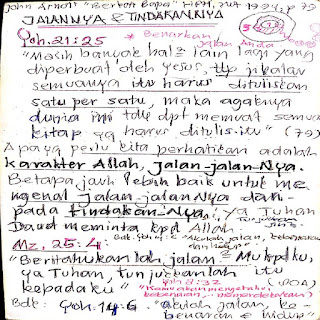 John Arnott "Berkat Bapa" HPM, 1994, p 79
JALANNYA & TINDAKANNYA
Yoh. 21:25 * Benarkan Jalan Anda
"Masih banyak hal2 lain lagi yang
diperbuat oleh Yesus, ttp jikalau
semuanya itu harus dituliskan
satu per satu, maka agaknya
dunia ini tdk dpt memuat semua
kitab yg harus ditulis itu" (79)
Apa yg perlu kita perhatikan adalah
karakter Allah, jalan-jalan-Nya.
Betapa jauh lebih baik untuk me
ngenal jalan-jalanNya dari-
pada tindakan-Nya. "ya Tuhan
Daud meminta kpd Allah.
Mz. 25:4
"Beritahukanlah jalan2 Mu kpdku,
ya Tuhan, tunjukkanlah itu
kepadaku"
Yoh 8:32
Bdk: Yoh 14:6 "akulah jalan, ke-
benaran & hidup"